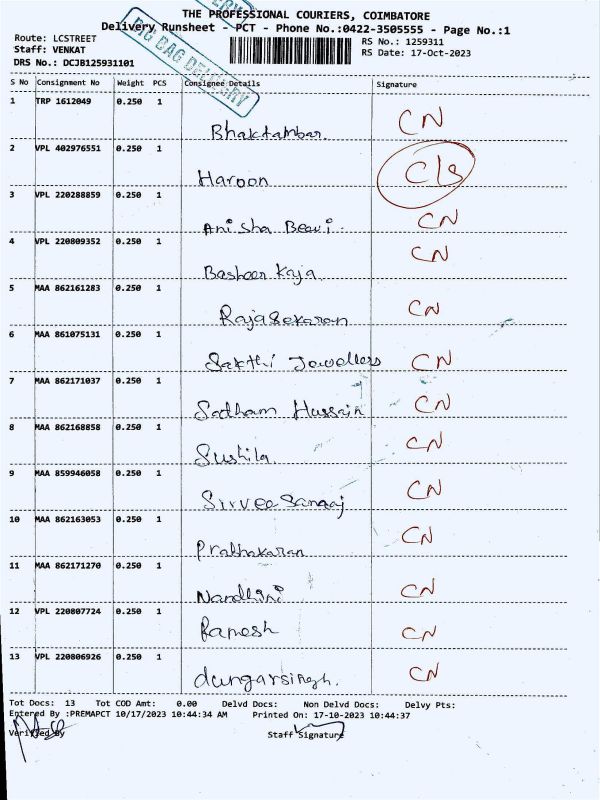 THE PROFESSIONAL COURIERS, COIMBATORE
Delivery Runsheet - PCT - Phone No.:0422-3505555 - Page No.:1
Route: LCSTREET
RS No.: 1259311
Staff: VENKAT
RS Date: 17-Oct-2023
DRS No.: DCJB125931101
BIG BAG DELIVERY
S No Consignment No Weight PCS Consignee Details Signature
1 TRP 1612049 0.250 1 Bhaktambar. CN
2 VPL 402976551 0.250 1 Haroon C/s
3 VPL 220288859 0.250 1 Anisha Beevi. CN
4 VPL 220809352 0.250 1 Basheer Kaja. CN
5 MAA 862161283 0.250 1 Rajasekaran CN
6 MAA 861075131 0.250 1 Sakthi Jewellers CN
7 MAA 862171037 0.250 1 Satham Hussain CN
8 MAA 862168858 0.250 1 Sushila. CN
9 MAA 859946058 0.250 1 CN
10 MAA 862163053 0.250 1 Prabhakaran CN
11 MAA 862171270 0.250 1 Nandhini CN
12 VPL 220807724 0.250 1 Ramesh CN
13 VPL 220806926 0.250 1 dungarsingh. CN
Tot Docs: 13 Tot COD Amt: 0.00 Delvd Docs: Non Delvd Docs: Delvy Pts:
Entered By :PREMAPCT 10/17/2023 10:44:34 AM Printed On: 17-10-2023 10:44:37
Verified By Staff Signature